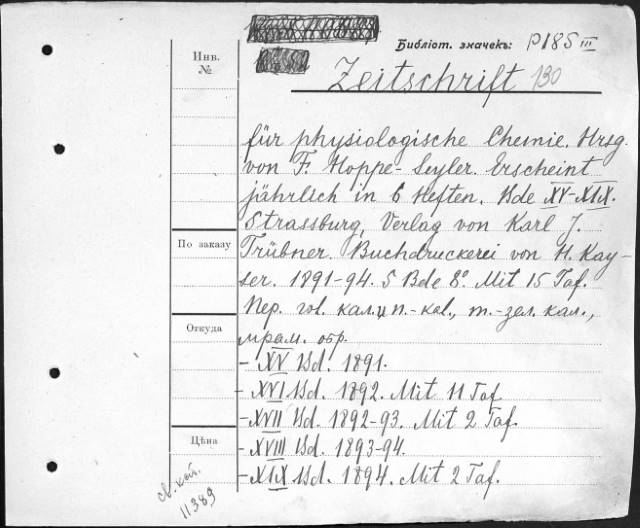 Библіот. значекъ: P185 III
Инв.
№
Zeitschrift 130
für physiologische Chemie. Hrsg.
von F. Hoppe-Seyler. Erscheint
jährlich in 6 Heften. Bde XV-XIX.
Strassburg, Verlag von Karl J.
По заказу
Trübner. Buchdruckerei von H. Kay-
ser. 1891-94. 5 Bde 8°. Mit 15 Taf.
Пер. гол. кал. и п.-кол., т.-зел. кал.,
Откуда
мрам. обр.
- XV Bd. 1891.
- XVI Bd. 1892. Mit 11 Taf.
- XVII Bd. 1892-93. Mit 2 Taf.
Цѣна
- XVIII Bd. 1893-94.
- XIX Bd. 1894. Mit 2 Taf.
св. кат.
11389